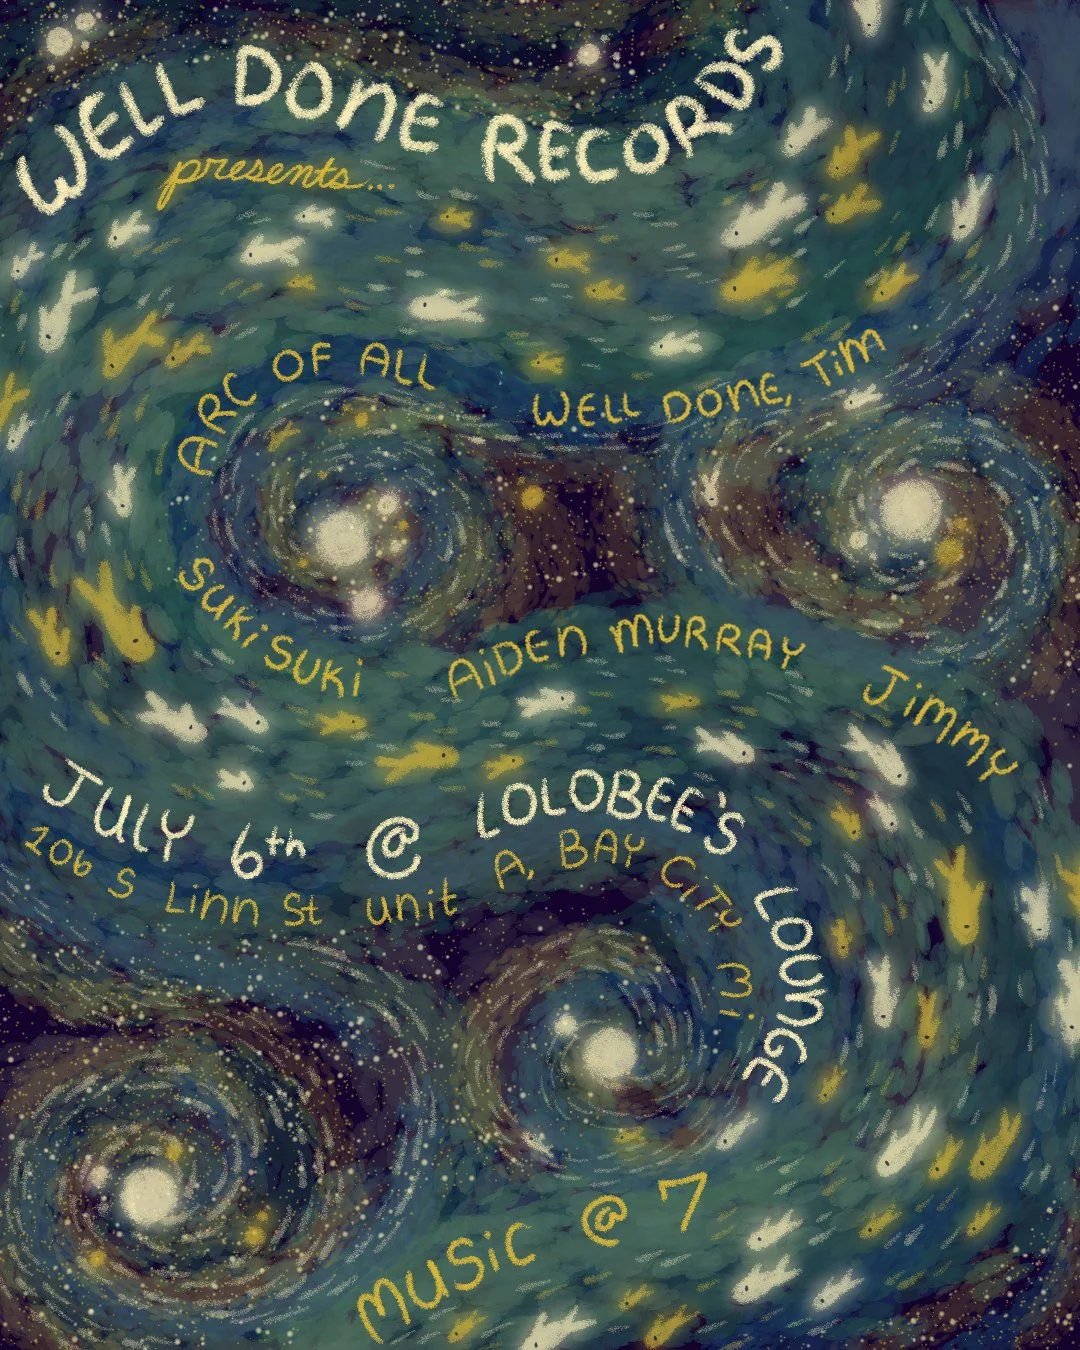 WELL DONE RECORDS
presents...
ARC OF ALL
WELL DONE, TiM
SUKiSUKi
AiDEN MURRAY
JiMMY
JULY 6th @ LOLOBEE'S LOUNGE
106 S Linn St unit A, BAY CiTY Mi
MUSiC @ 7